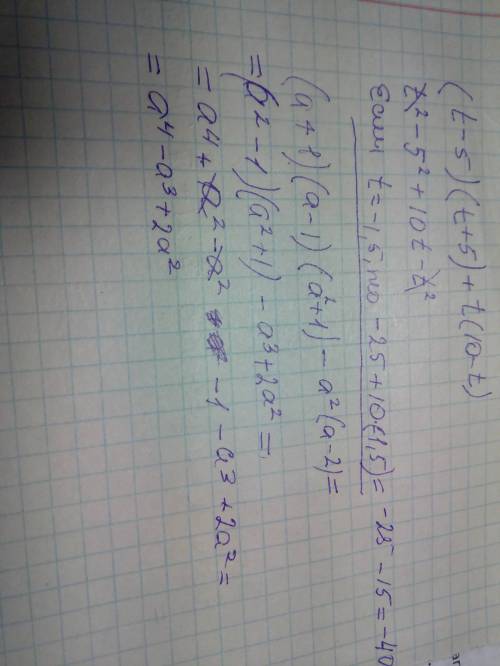 (t-5)(t+5)+t(10-t)
t²-5²+10t-t²
Если t=-1,5, то -25+10(-1,5)=-25-15=-40
(a+1)(a-1)(a²+1)-a²(a-2)=
=(a²-1)(a²+1)-a³+2a²=
=a⁴+a²-a²-1-a³+2a²=
=a⁴-a³+2a²